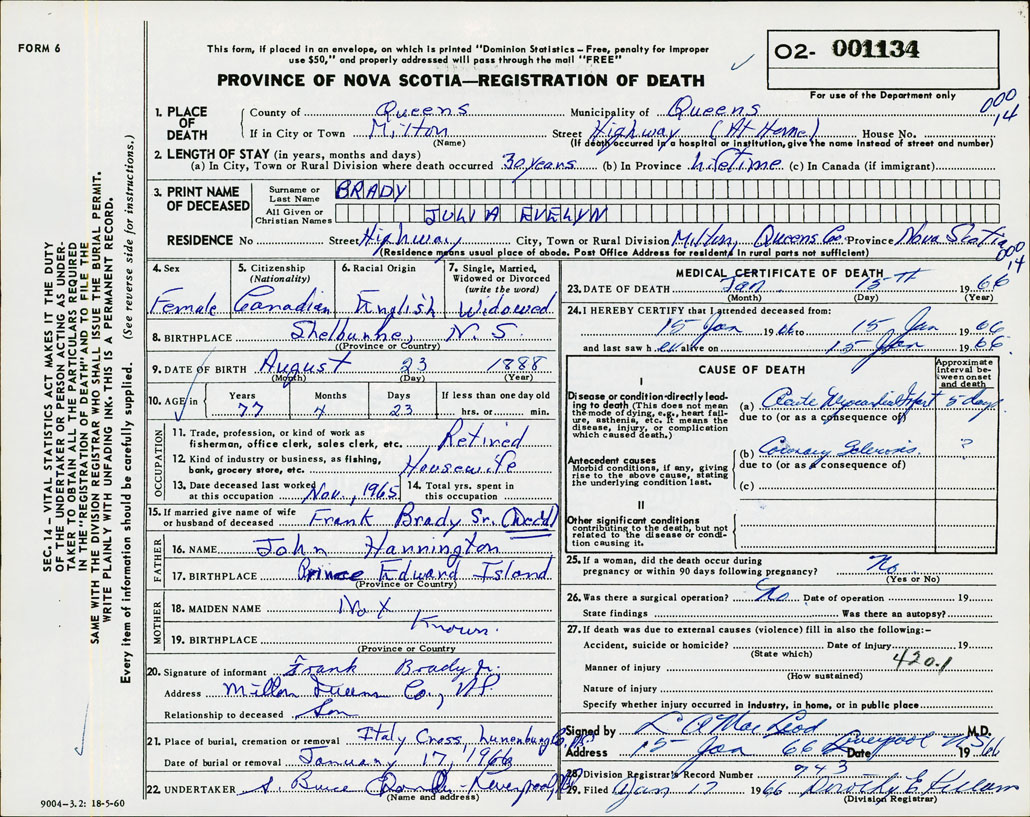 FORM 6
This form, if placed in an envelope, on which is printed "Dominion Statistics – Free, penalty for improper
use $50," and properly addressed will pass through the mail "FREE"
PROVINCE OF NOVA SCOTIA—REGISTRATION OF DEATH
O2- 001134
For use of the Department only
000
14
SEC. 14 – VITAL STATISTICS ACT MAKES IT THE DUTY
OF THE UNDERTAKER OR PERSON ACTING AS UNDER-
TAKER TO OBTAIN ALL THE PARTICULARS REQUIRED
IN THE "REGISTRATION OF DEATH" AND TO FILE THE
SAME WITH THE DIVISION REGISTRAR WHO SHALL ISSUE THE BURIAL PERMIT.
WRITE PLAINLY WITH UNFADING INK. THIS IS A PERMANENT RECORD.
Every item of information should be carefully supplied. (See reverse side for instructions.)
1. PLACE OF DEATH
County of Queens Municipality of Queens
If in City or Town Milton Street Highway (At Home) House No.
(Name) (If death occurred in a hospital or institution, give the name instead of street and number)
2. LENGTH OF STAY (in years, months and days)
(a) In City, Town or Rural Division where death occurred 30 years (b) In Province lifetime (c) In Canada (if immigrant)
3. PRINT NAME OF DECEASED
Surname or Last Name BRADY
All Given or Christian Names JULIA EVELYN
RESIDENCE No Street Highway City, Town or Rural Division Milton, Queens Co. Province Nova Scotia
(Residence means usual place of abode. Post Office Address for residents in rural parts not sufficient)
000
14
4. Sex 5. Citizenship (Nationality) 6. Racial Origin 7. Single, Married, Widowed or Divorced (write the word)
Female Canadian English Widowed
8. BIRTHPLACE Shelburne, N.S.
(Province or Country)
9. DATE OF BIRTH August 23 1888
(Month) (Day) (Year)
10. AGE in Years Months Days If less than one day old
77 4 23 hrs. or min.
OCCUPATION
11. Trade, profession, or kind of work as
fisherman, office clerk, sales clerk, etc. Retired
12. Kind of industry or business, as fishing,
bank, grocery store, etc. Housewife
13. Date deceased last worked at this occupation Nov., 1965 14. Total yrs. spent in this occupation
15. If married give name of wife
or husband of deceased Frank Brady Sr. (Decd)
FATHER
16. NAME John Hannington
17. BIRTHPLACE Prince Edward Island
(Province or Country)
MOTHER
18. MAIDEN NAME Not
Known.
19. BIRTHPLACE
(Province or Country)
20. Signature of informant Frank Brady Jr.
Address Milton Queens Co., N.S.
Relationship to deceased Son
21. Place of burial, cremation or removal Italy Cross, Lunenburg Co., N.S.
Date of burial or removal January 17, 1966
22. UNDERTAKER Bruce Liverpool
(Name and address)
MEDICAL CERTIFICATE OF DEATH
23. DATE OF DEATH Jan 15TH 1966
(Month) (Day) (Year)
24. I HEREBY CERTIFY that I attended deceased from:
15 Jan 1966 to 15 Jan 1966
and last saw her alive on 15 Jan 1966.
CAUSE OF DEATH
Approximate interval between onset and death
I
Disease or condition directly lead-
ing to death (This does not mean
the mode of dying, e.g., heart fail-
ure, asthenia, etc. It means the
disease, injury, or complication
which caused death.)
(a) Acute Myocardial Infarct 5 days
due to (or as a consequence of)
Antecedent causes
Morbid conditions, if any, giving
rise to the above cause, stating
the underlying condition last.
(b) Coronary Sclerosis ?
due to (or as a consequence of)
(c)
II
Other significant conditions
contributing to the death, but not
related to the disease or condi-
tion causing it.
25. If a woman, did the death occur during
pregnancy or within 90 days following pregnancy? No
(Yes or No)
26. Was there a surgical operation? No Date of operation 19
State findings Was there an autopsy?
27. If death was due to external causes (violence) fill in also the following:–
Accident, suicide or homicide? Date of injury 19
(State which)
420.1
Manner of injury
(How sustained)
Nature of injury
Specify whether injury occurred in Industry, in home, or in public place
Signed by L A MacLeod M.D.
Address Liverpool NS
15 Jan 66 Date 1966
28. Division Registrar's Record Number 943
29. Filed Jan 17 1966 Dorothy E Killam
(Division Registrar)
9004-3.2: 18-5-60